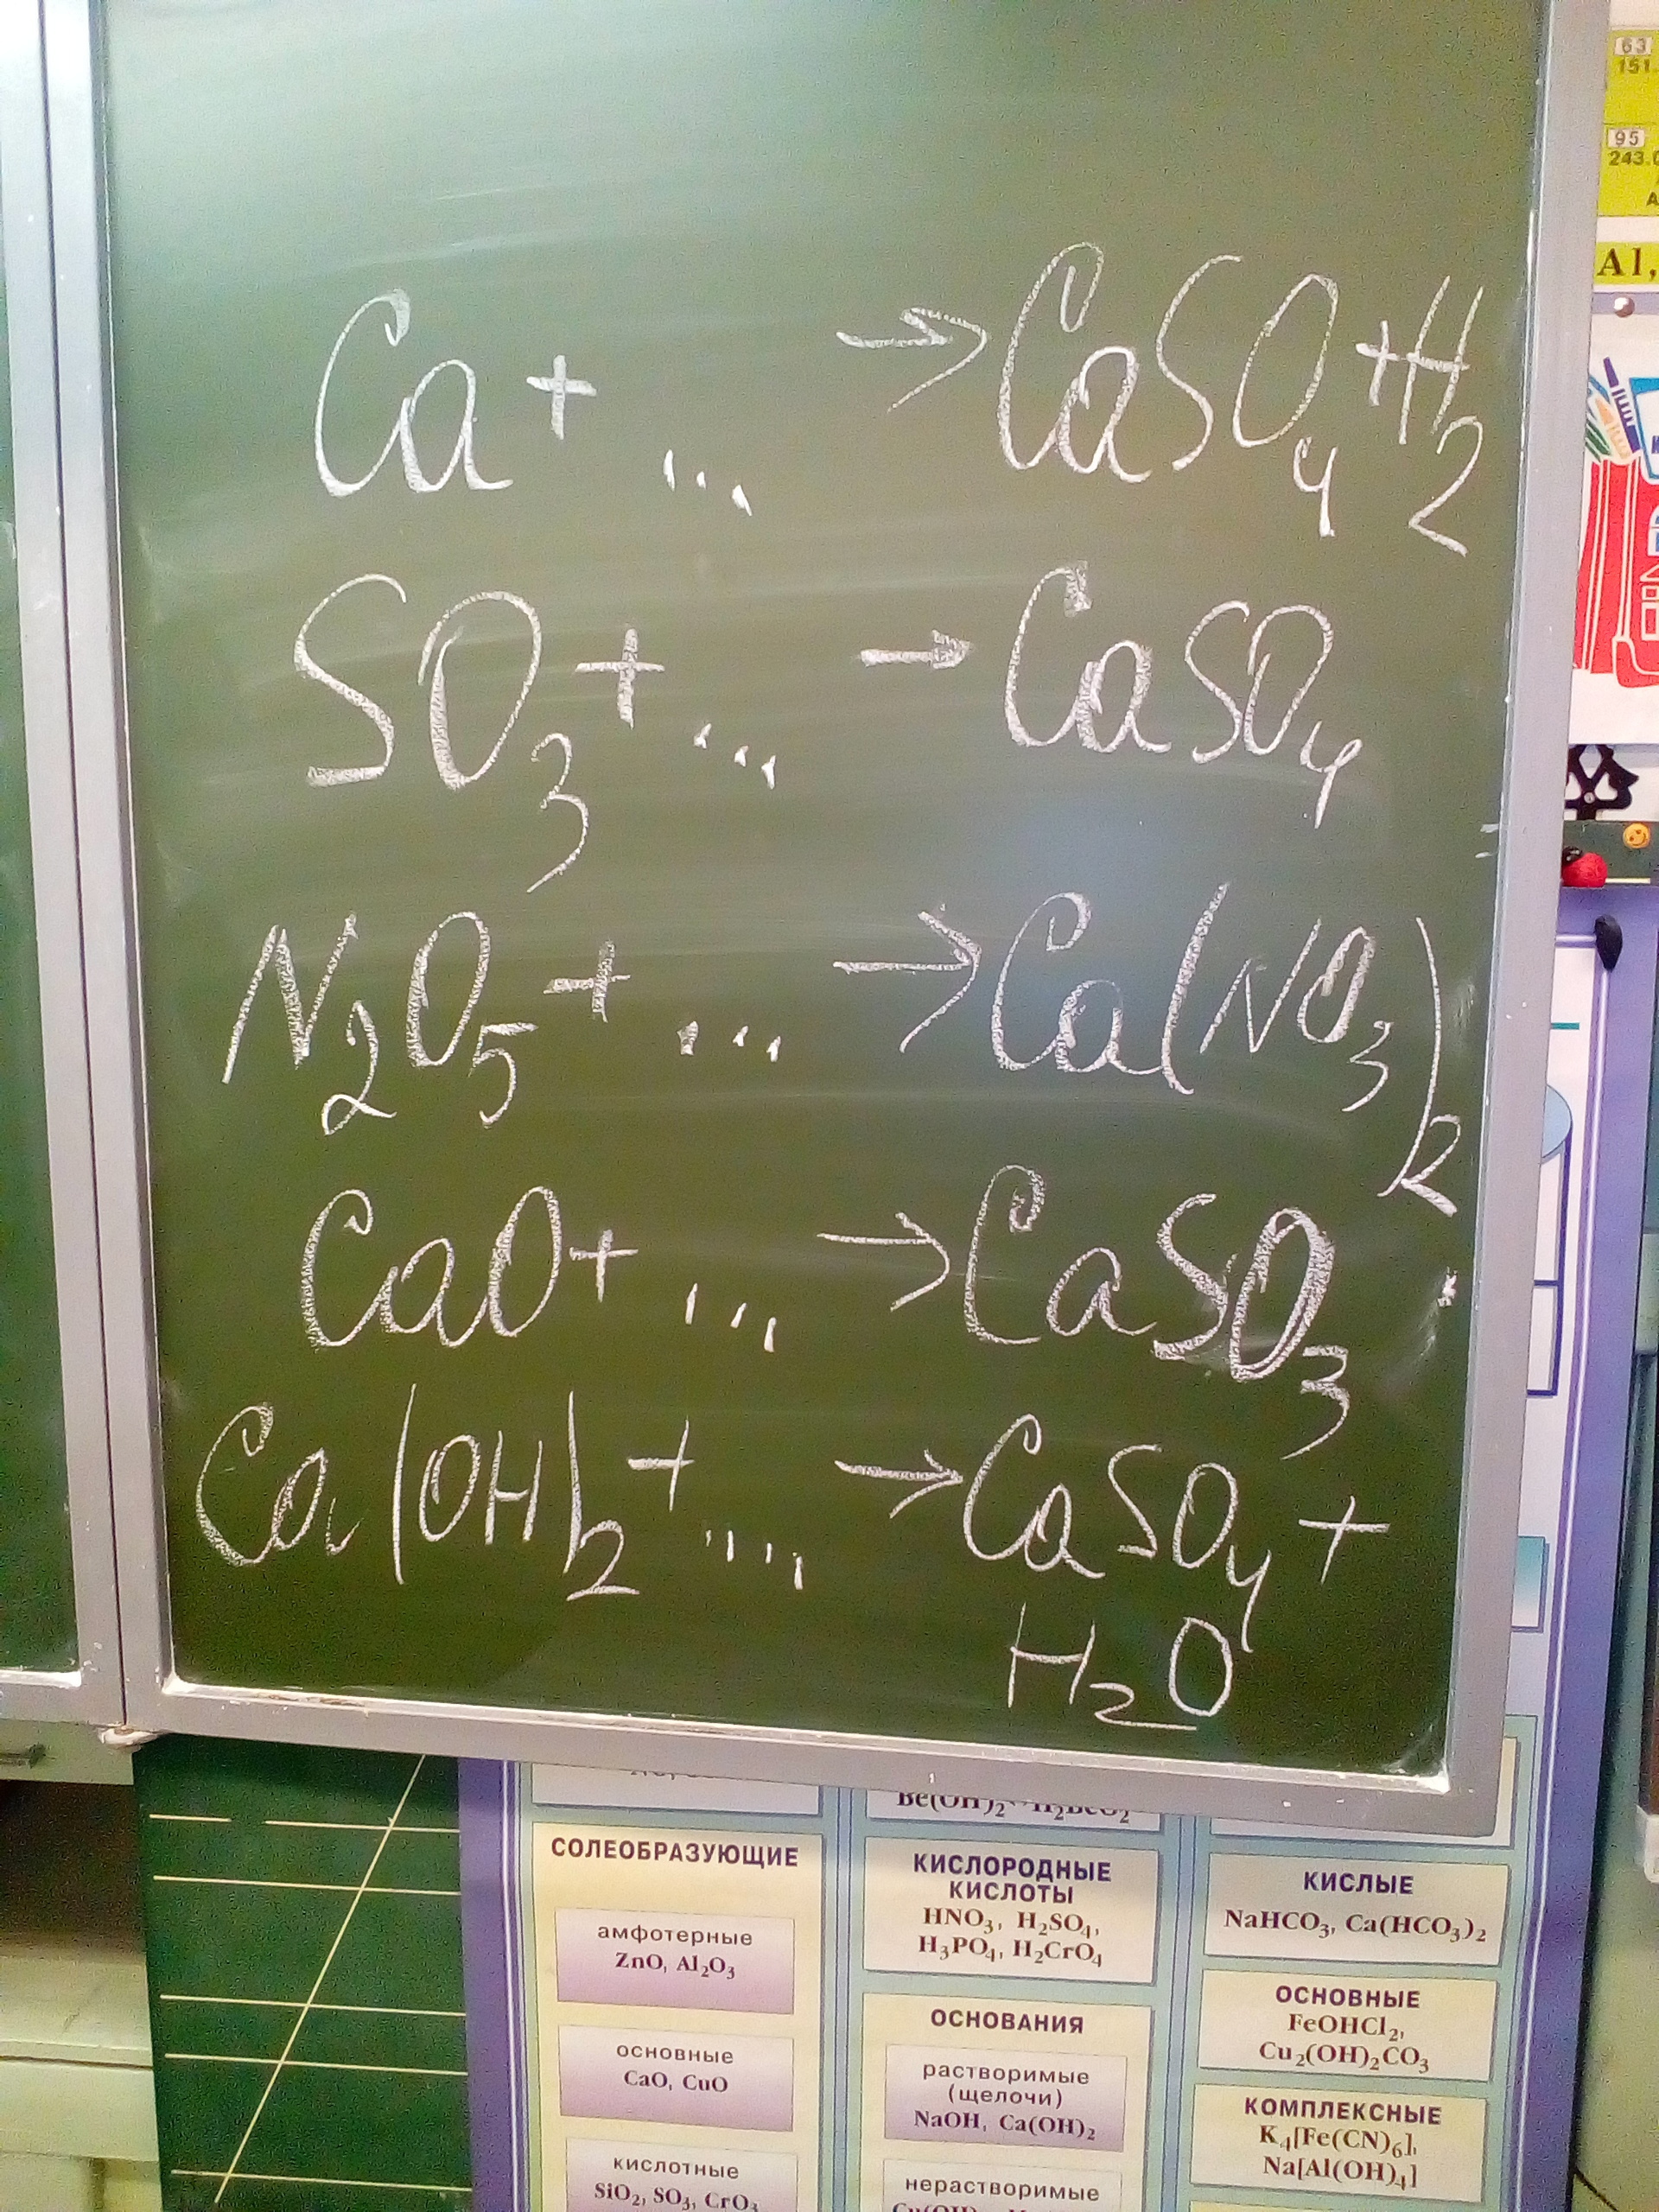 Ca + ... → CaSO₄ + H₂
SO₃ + ... → CaSO₄
N₂O₅ + ... → Ca(NO₃)₂
CaO + ... → CaSO₃
Ca(OH)₂ + ... → CaSO₄ +
H₂O
63
151.
95
243.0
Al,
Be(OH)₂ H₂BeO₂
СОЛЕОБРАЗУЮЩИЕ
амфотерные
ZnO, Al₂O₃
основные
CaO, CuO
кислотные
SiO₂, SO₃, CrO₃
КИСЛОРОДНЫЕ
КИСЛОТЫ
HNO₃, H₂SO₄,
H₃PO₄, H₂CrO₄
ОСНОВАНИЯ
растворимые
(щелочи)
NaOH, Ca(OH)₂
нерастворимые
КИСЛЫЕ
NaHCO₃, Ca(HCO₃)₂
ОСНОВНЫЕ
FeOHCl₂,
Cu₂(OH)₂CO₃
КОМПЛЕКСНЫЕ
K₄[Fe(CN)₆],
Na[Al(OH)₄]